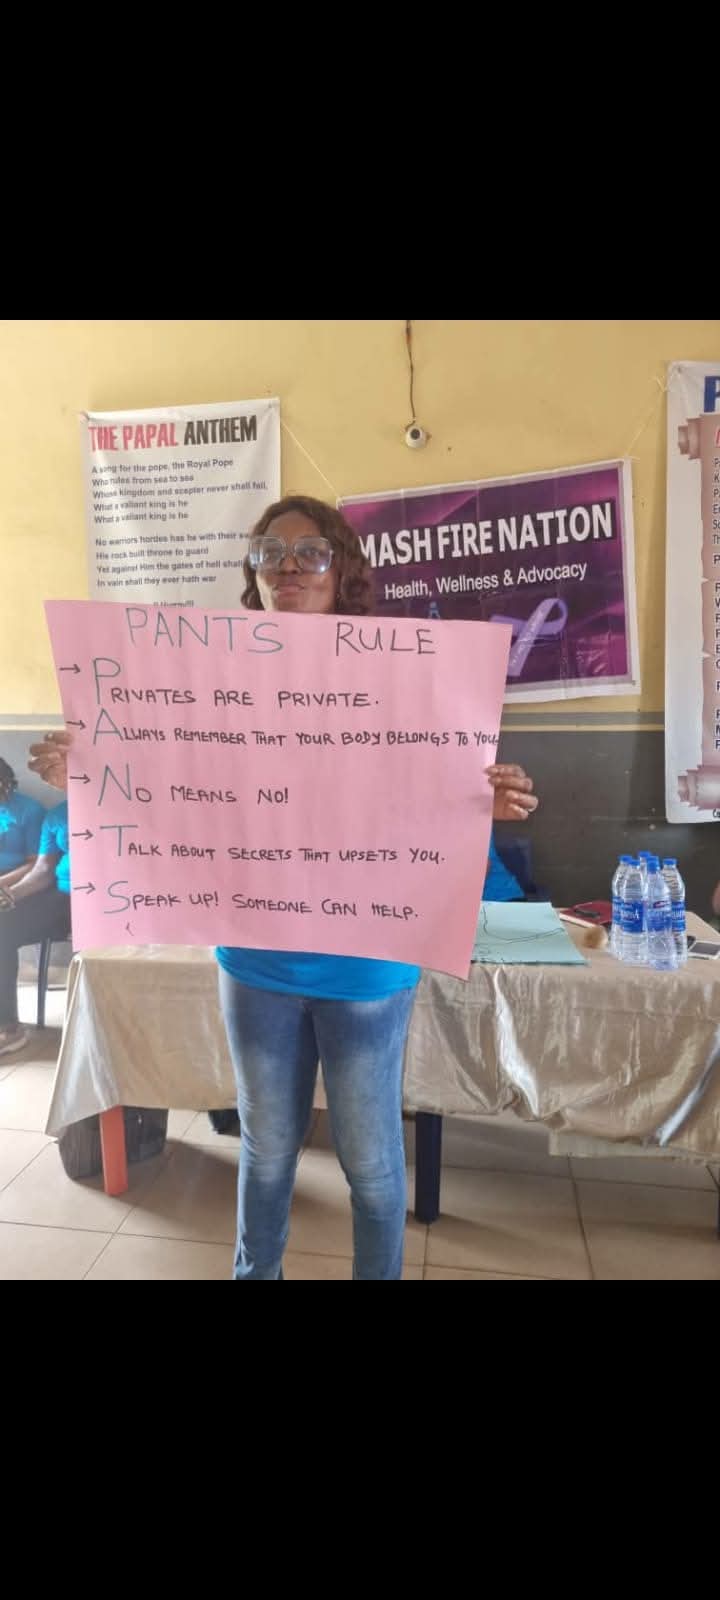 THE PAPAL ANTHEM
A song for the pope, the Royal Pope
Who rules from sea to sea
Whose kingdom and scepter never shall fail,
What a valiant king is he
What a valiant king is he
No warriors hordes has he with their
His rock built throne to guard
Yet against Him the gates of hell shall
In vain shall they ever hath war
MASH FIRE NATION
Health, Wellness & Advocacy
PANTS RULE
→ PRIVATES ARE PRIVATE.
→ ALWAYS REMEMBER THAT YOUR BODY BELONGS TO YOU.
→ NO MEANS NO!
→ TALK ABOUT SECRETS THAT UPSETS YOU.
→ SPEAK UP! SOMEONE CAN HELP.